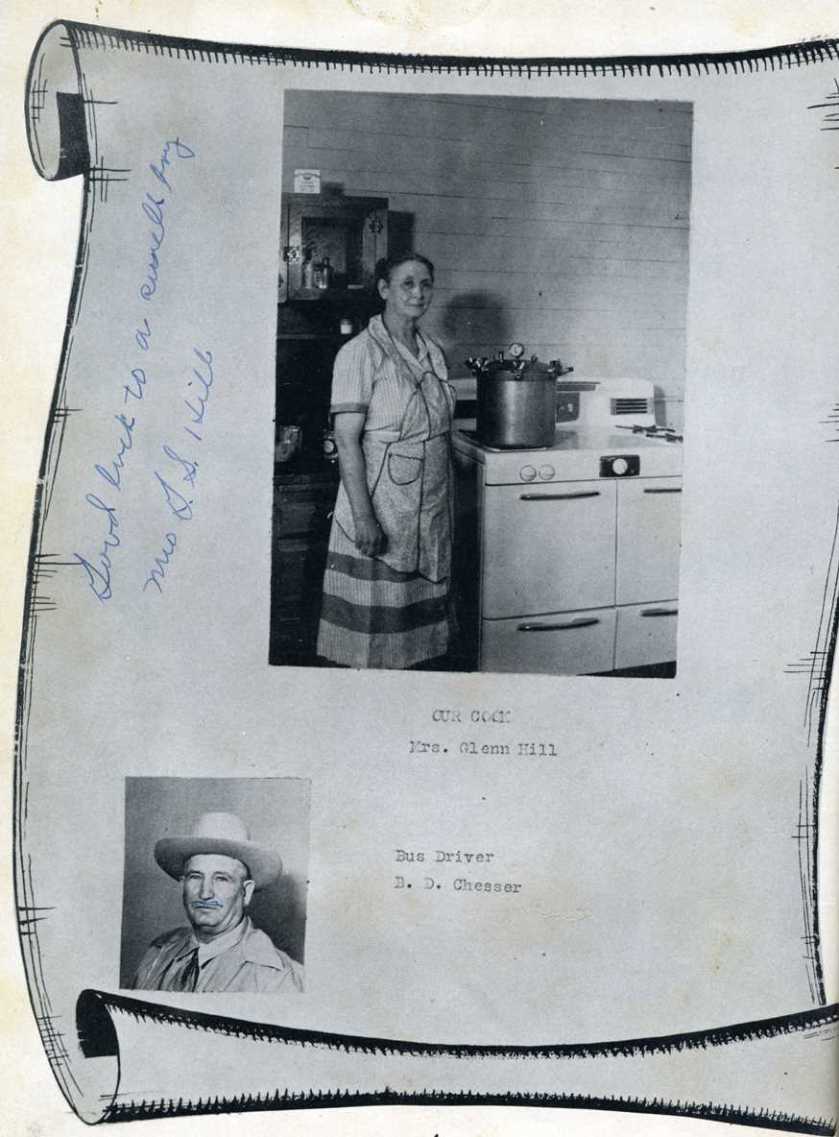 Good luck to a swell boy
Mrs G. S. Hill
OUR COOK
Mrs. Glenn Hill
Bus Driver
B. D. Chesser